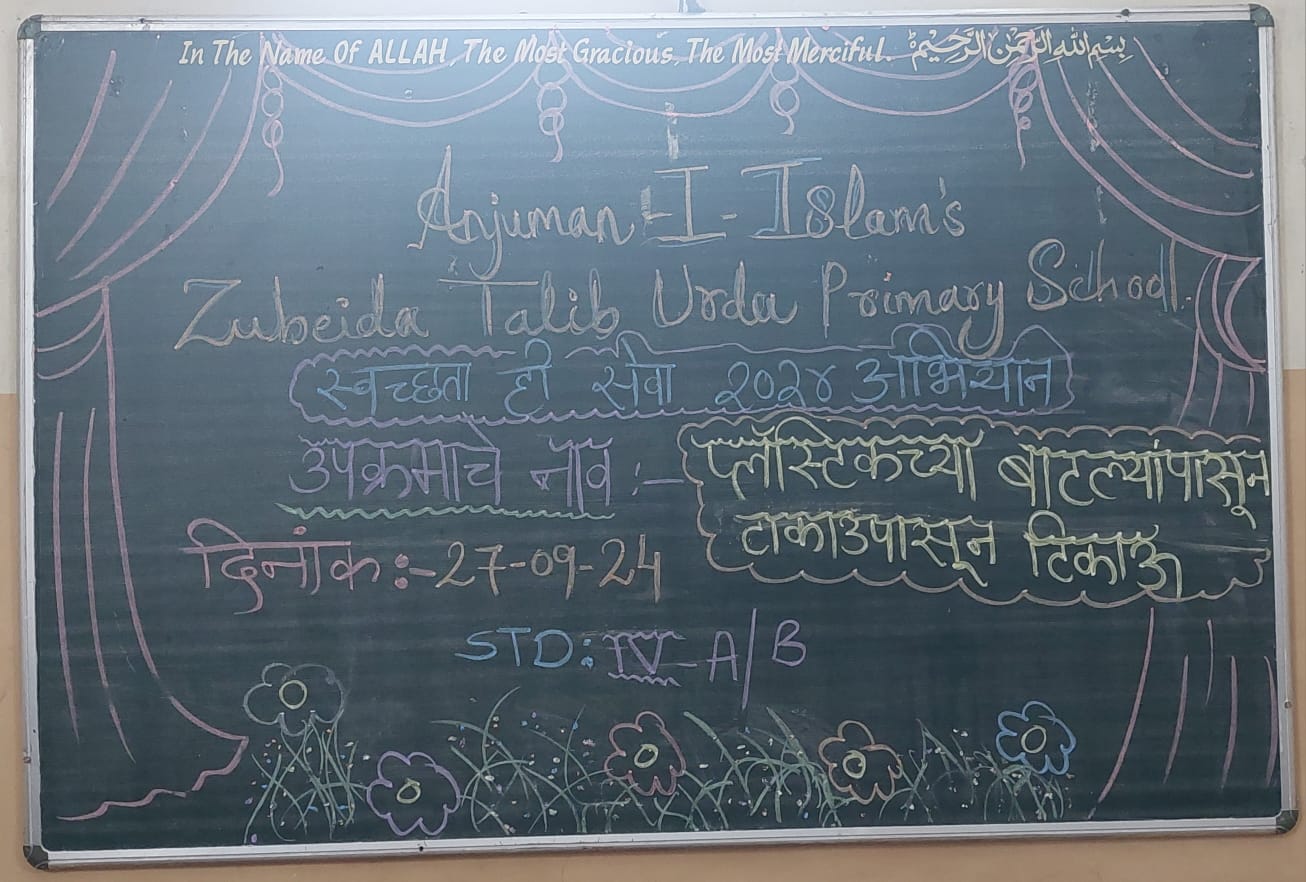 In The Name Of ALLAH, The Most Gracious, The Most Merciful. بِسْمِ اللهِ الرَّحْمٰنِ الرَّحِيْمِ
Anjuman-I-Islam's
Zubeida Talib Urdu Primary School.
स्वच्छता ही सेवा २०२४ अभियान
उपक्रमाचे नाव :- प्लॅास्टिकच्या बाटल्यांपासून
टाकाउपासून टिकाऊ
दिनांक:-27-09-24
STD: IV-A/B